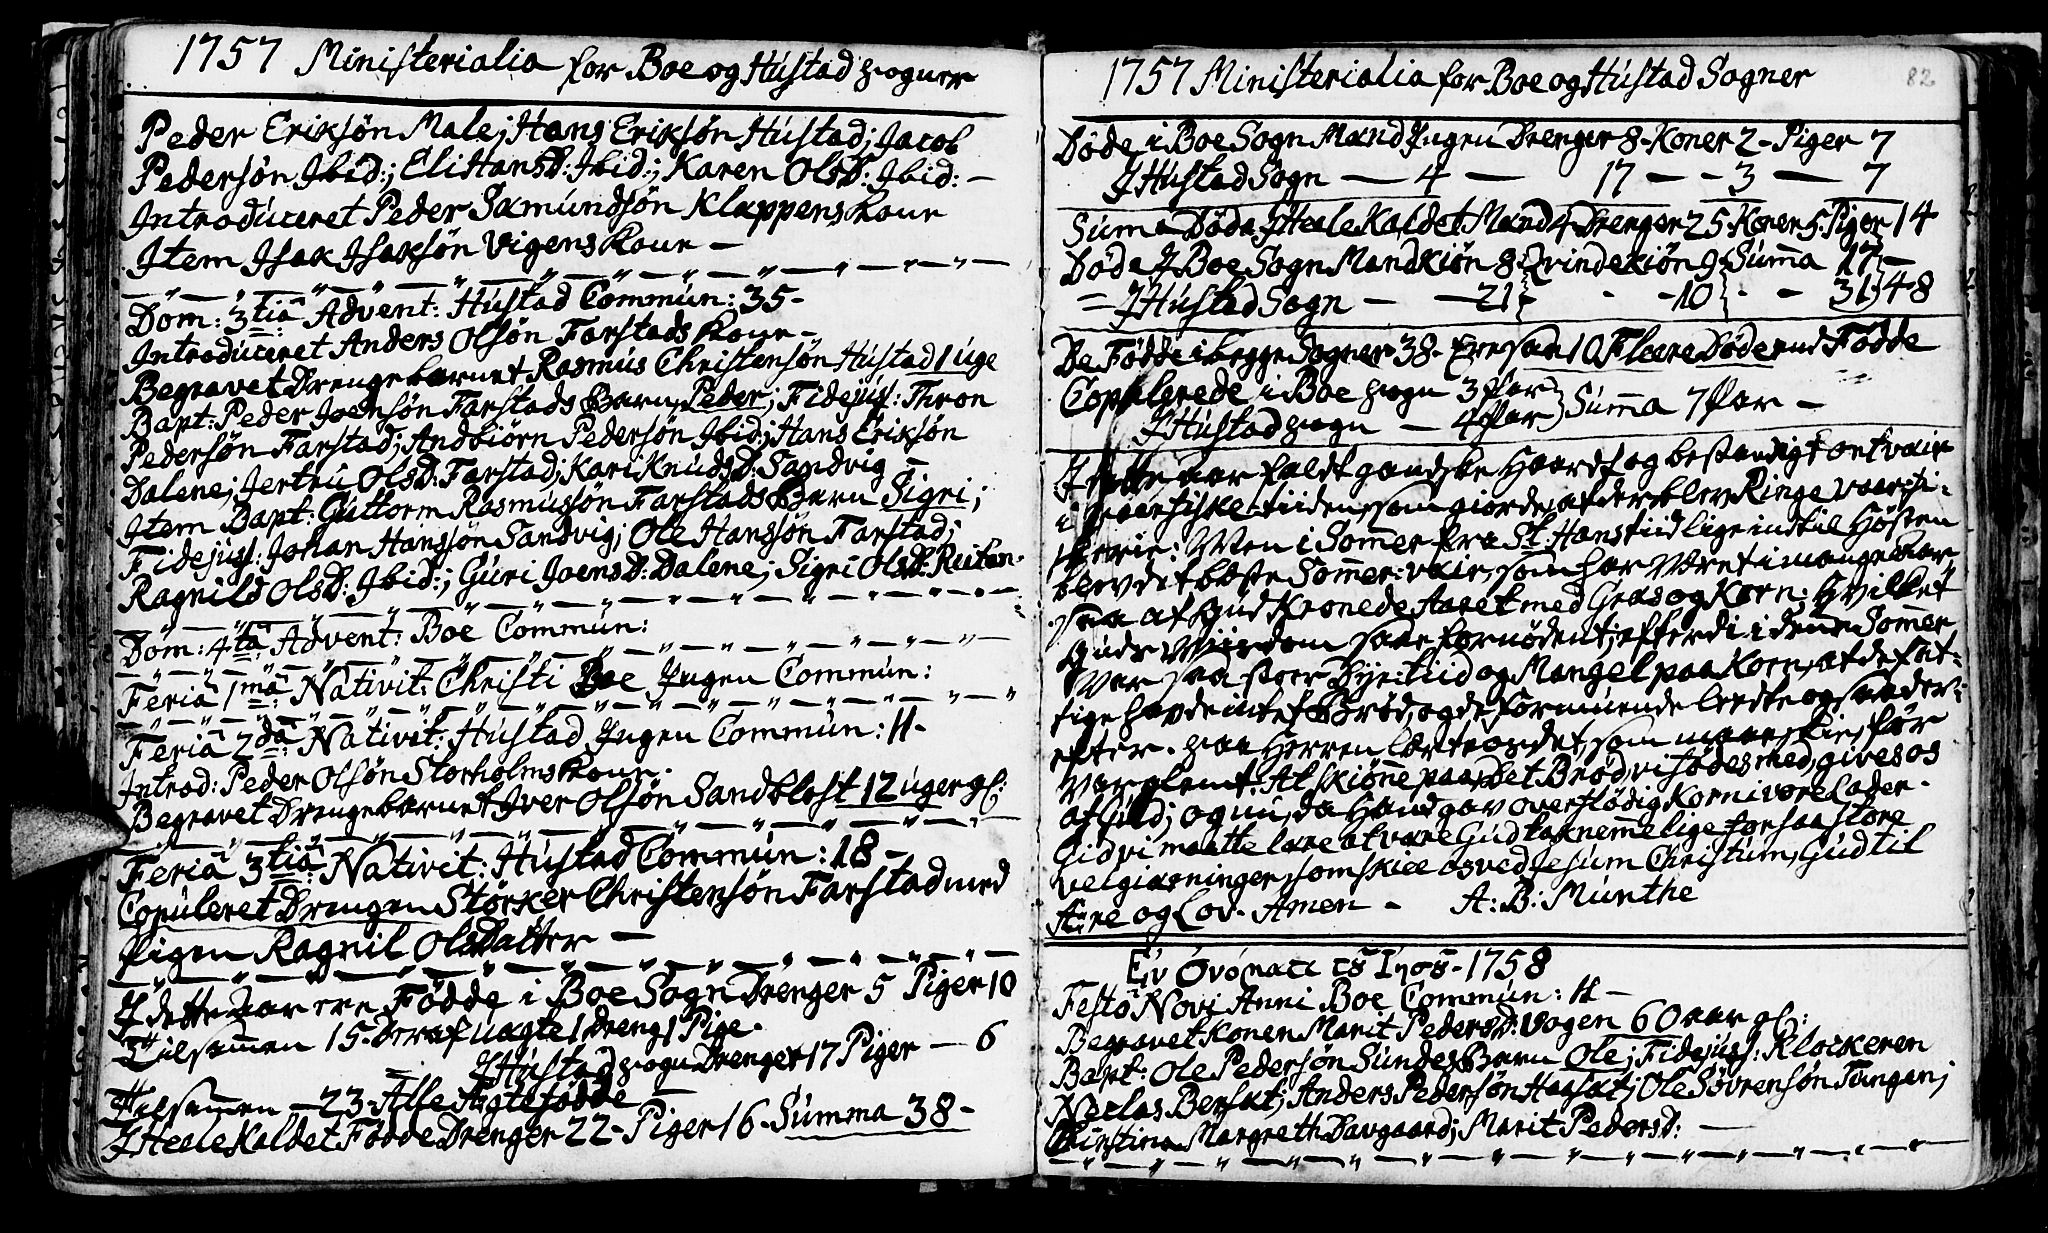 1757 Ministerialia for Boe og Hústad Sogner
Peder Eriksøn Male; Hans Eriksøn Hústad; Jacob
Pedersøn Ibid:; Eli Hansd: Ibid:; Karen Olsd: Ibid: —
Introdúceret Peder Samúndsøn Klappens Kone
Item Isak Isaksøn Vigens Kone —
Dom: 3tia Advent: Hústad Commún: 35-
Introdúceret Anders Olsøn Farstads Kone-
Begravet Drengebarnet Rasmús Christensøn Hústad 1 úge
Bapt: Peder Joensøn Farstads Barn Peder; Fidejúss: Thron
Pedersøn Farstad; Andbiørn Pedersøn Ibid; Hans Eriksøn
Dalene; Jertrú Olsd: Farstad; Kari Knúdsd: Sandvig —
Item Bapt: Gúttorm Rasmúsøn Farstads Barn Sigri;
Fidejúss: Johan Hansøn Sandvig; Ole Hansøn Farstad;
Ragnild Olsd: Ibid:; Gúri Joensd: Dalene; Sigri Olsd: Reiten-
Dom: 4ta Advent: Boe Commún:
Feria 1ma Nativit: Christi Boe Ingen Commún:
Feria 2da: Nativit: Hústad Ingen Commún: H-
Introd: Peder Olsøn Storholms Kone.
Begravet Drengebarnet Iver Olsøn Sandblost 12 úger gl:
Feria 3tia: Nativit: Hústad Commún: 18 —
Copúleret Drengen Størker Christensøn Farstad med
Pigen Ragnil Olsdatter —
I dette Aar ere Fødde i Boe Sogn Drenger 5 Piger 10
Tilsammen 15- deraf úægte 1 Dreng 1 Pige-
I Hústad Sogn Drenger 17 Piger — 6
Tilsammen — 23- Alle Ægtefødde —
I Heele Kaldet Fødde Drenger 22- Piger 16- Súmma 38-
1757 Ministerialia for Boe og Hústad Sogner
82
Døde i Boe Sogn Mand Ingen Drenger 8- Koner 2- Piger 7
I Hústad Sogn — 4 — 17 — - 3 — 7
Súma Døde I Heele Kaldet Mand 4 Drenger 25 Koner 5 Piger 14
Døde I Boe Sogn Mandkiøn 8 Qvindekiøn 9 Súma 17 —
= I Hústad Sogn — — 21 - - 10 - - 31 48
De Fødde i begge Sogner 38- Ere saa 10 Fleere Døde end Fødde
Copúlerede i Boe Sogn 3 Par
I Hústad Sogn — 4 Par Súma 7 Par —
I dette aar faldt gandske Haardt og bestandigt ont vair
i Vaarfiske-tiiden, som giorde, at der blev Ringe Vaarfi-
skerie: Men i Sommer fra St. Hanstiid lige indtil Høsten
blev det beste Sommer-vair, som har Været i mange aar
saa at Gud Kronede Aaret med Græs og Korn: Hvilket
Guds Viisdom saae fornødent, efterdi i denne Sommer
Var saa stoer Dyr-tiid og Mangel paa Korn, at de fat-
tige havde intet Brød, og de formúende leedte og spurder
efter. saa Herren lærte os det, som maaskie, før
var glemt: At skiønne paa det Brød, vi fødes med, gives os
af Gúd; og nú, da Hand gav overflødig Korn i vore Lader-
Gid vi maatte lære at være Gúd taknemmelige for saa store
Velgierninger, som skiee os ved Jesúm Christúm, Gúd til
Ære og Lov- Amen - A: B: Múnthe
1758
Festo Novi Anni Boe Commún: H —
Begravet Konen Marit Pedersd: Vogen 60 aar gl:
Bapt: Ole Pedersøn Súndes Barn Ole; Fidejúss: Klockeren
Niclas Bersat; Anders Pedersøn Haasæt; Ole Søvrensøn Tungen;
Kirstina Margreth Davgaard; Marit Pedersd: —